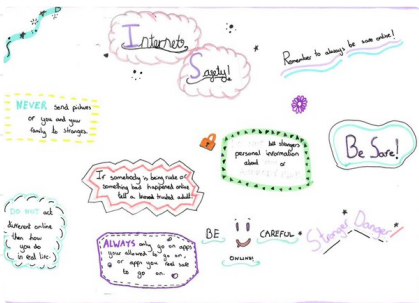 Internet
Safety!
Remember to always be safe online!
NEVER send pictures
of you and your
family to strangers.
tell strangers
personal information
about or
Be Safe!
If somebody is being rude or
something bad happened online
tell a trusted adult
DO NOT act
different online
then how
you do
in real life.
ALWAYS only go on apps
your allowed to go on,
or apps you feel safe
to go on.
BE CAREFUL
ONLINE!
Stranger Danger